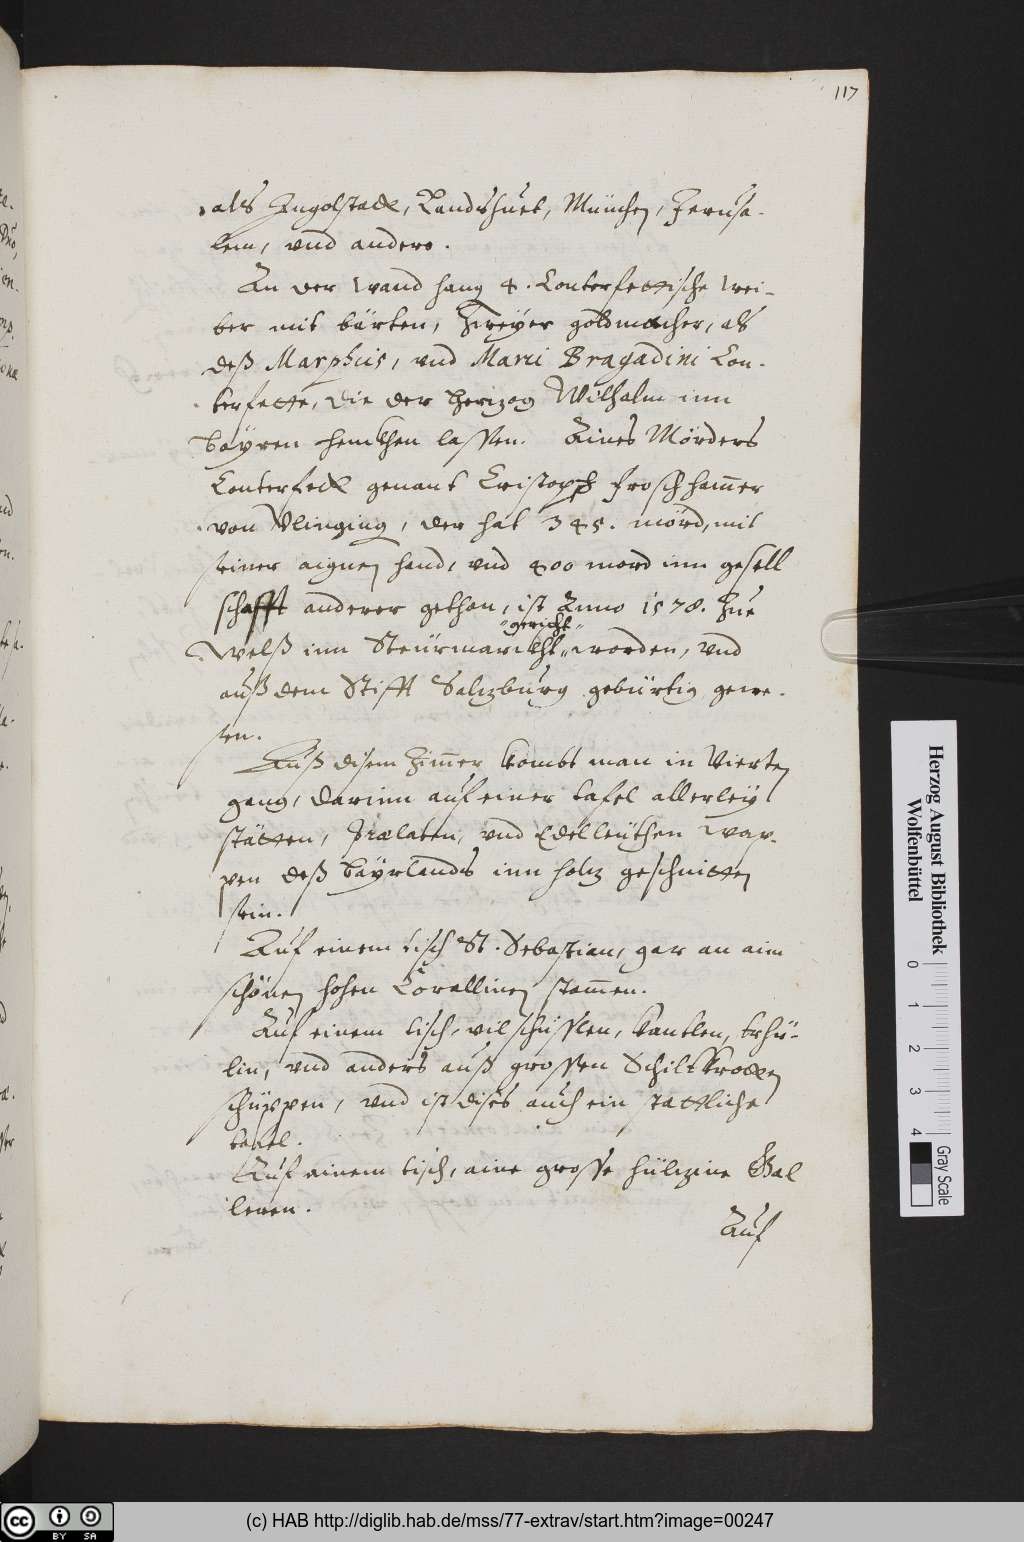 117
als Ingolstadt, Landshuet, München, Jerusa-
lem, vnd anders.
An der Wand hang 4. Conterfettische Wei-
ber mit bärten, Zweyer goldmacher, als
deß Marphiis, vnd Marci Bragadini Con-
terfette, die der Herzog Wilhelm inn
Bayren henckhen lassen. Aines Mörders
Conterfect genant Cristoph froschham̄er
von, der hat 345. mörd, mit
seiner aignen hand, vnd 400 mord inn gesell
schafft anderer gethon, ist Anno 1578. Zue
gericht
Welß inn Steürmarckht worden, vnd
auß dem Stifft Salzburg gebürtig gewe-
sen.
Auß disem Zim̄er kombt man in Vierten
gang, darinn auf einer tafel allerley
stätten, Prælaten, vnd Edelleüthen Wap-
pen deß Bayrlands inn holz geschnitten
sein.
Auf einem tisch St. Sebastian, gar an aim
schönen hohen Corallinen stam̄en.
Auf einem tisch, vil schüsslen, kantlen, trhü-
lin, vnd anders auß grossen Schiltkrotten
schüppen, vnd ist dises auch ein stattliche
tafel.
Auf einem tisch, aine grosse hülzine Gal
leren.
Auf
Herzog August Bibliothek
Wolfenbüttel
0 1 2 3 4
Gray Scale
cc BY SA
(c) HAB http://diglib.hab.de/mss/77-extrav/start.htm?image=00247